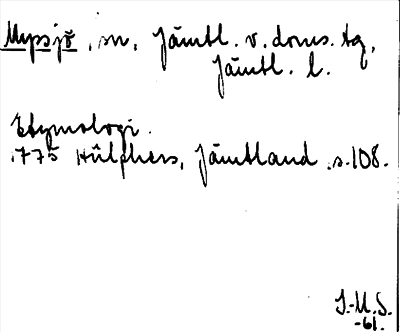 Mypsjö, sn, Jämtl. v. doms. tg,
Jämtl. l.
Etymologi.
1775 Hülphers, Jämtland s. 108.
I.-M.S.
-61.